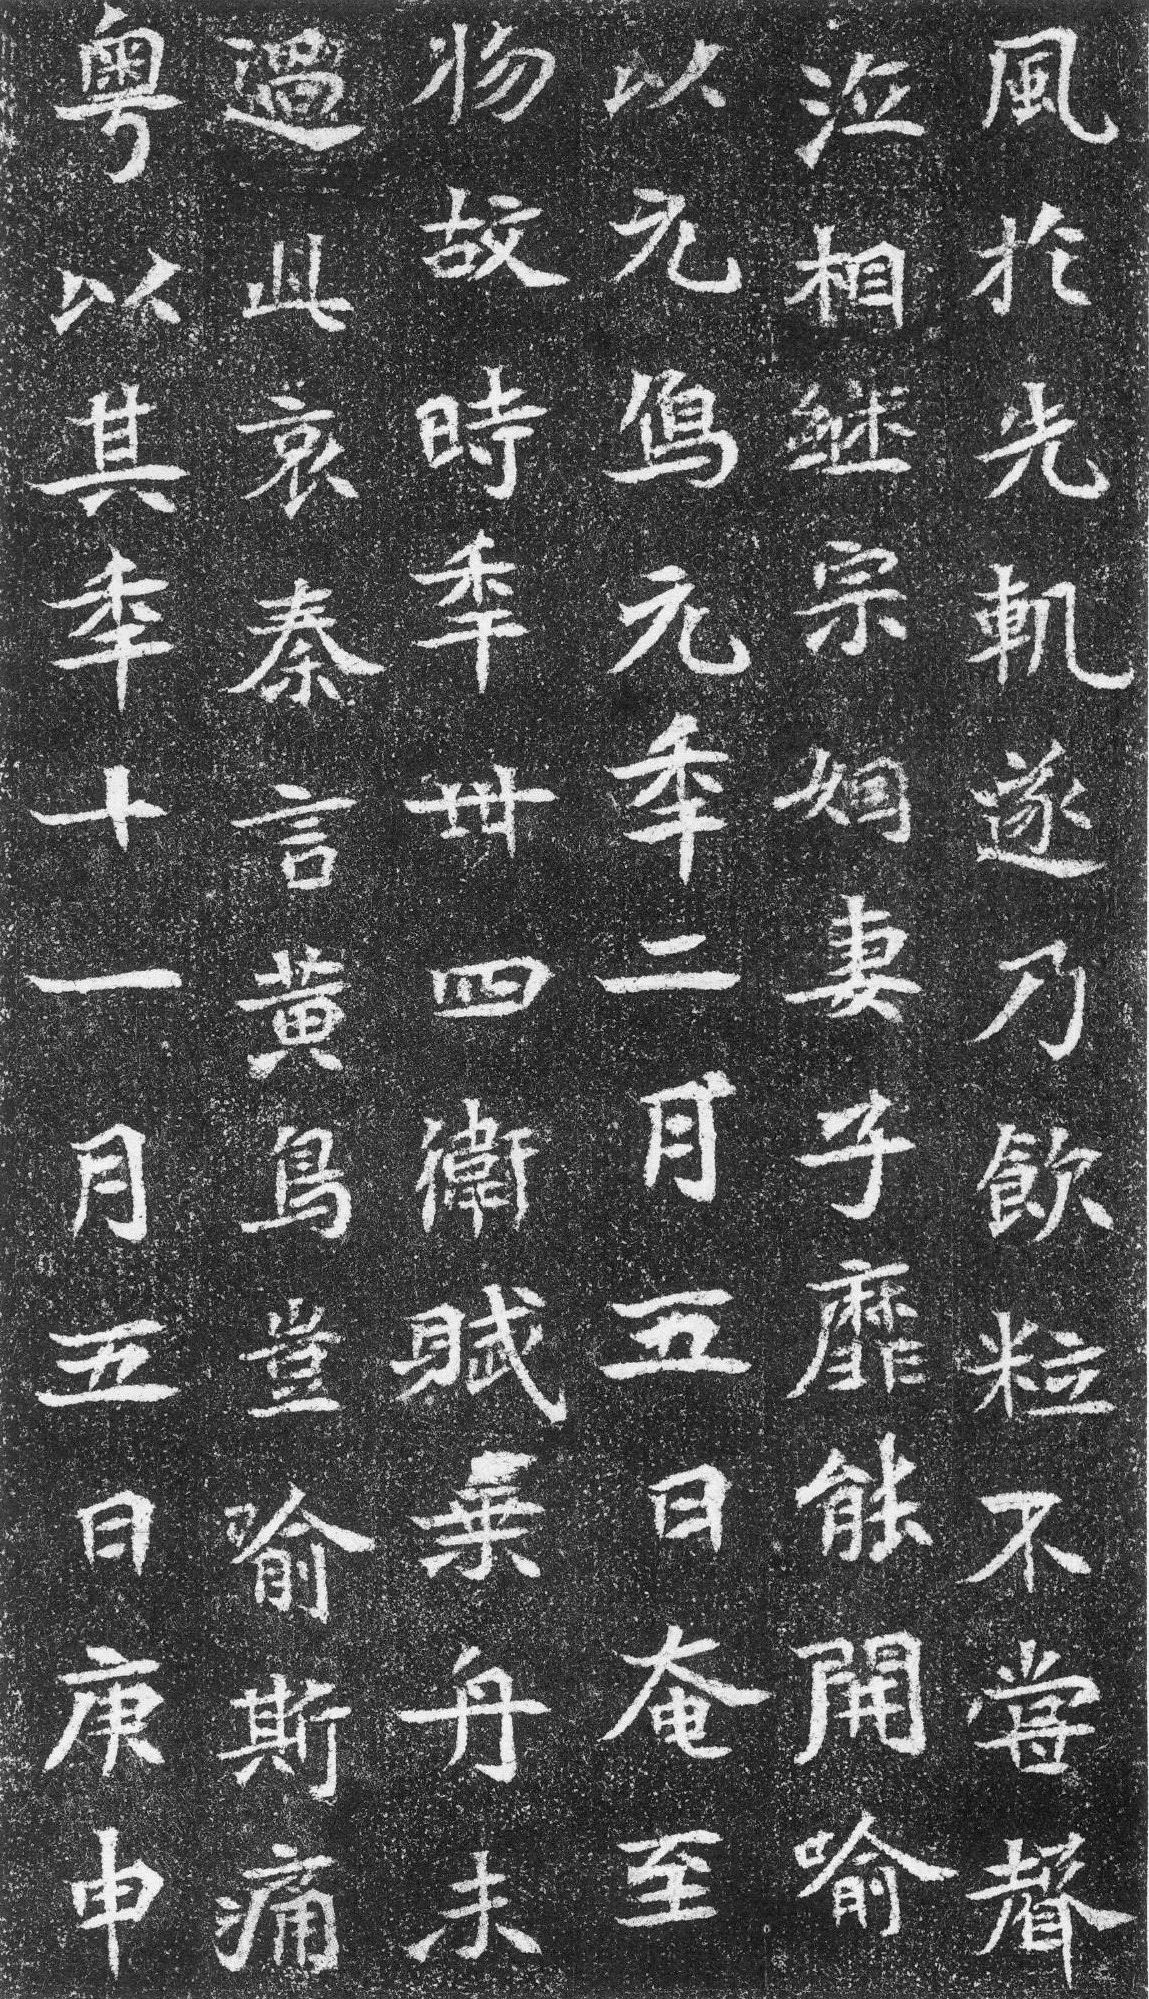 風於先軌遂乃飲粒不當聲
泣相繼宗姻妻子靡能開喻
以元鳥元年二月五日奄至
物故時年卅四衛賦乗舟未
過此哀秦言黃鳥豈喻斯痛
粵以其年十一月五日庚申